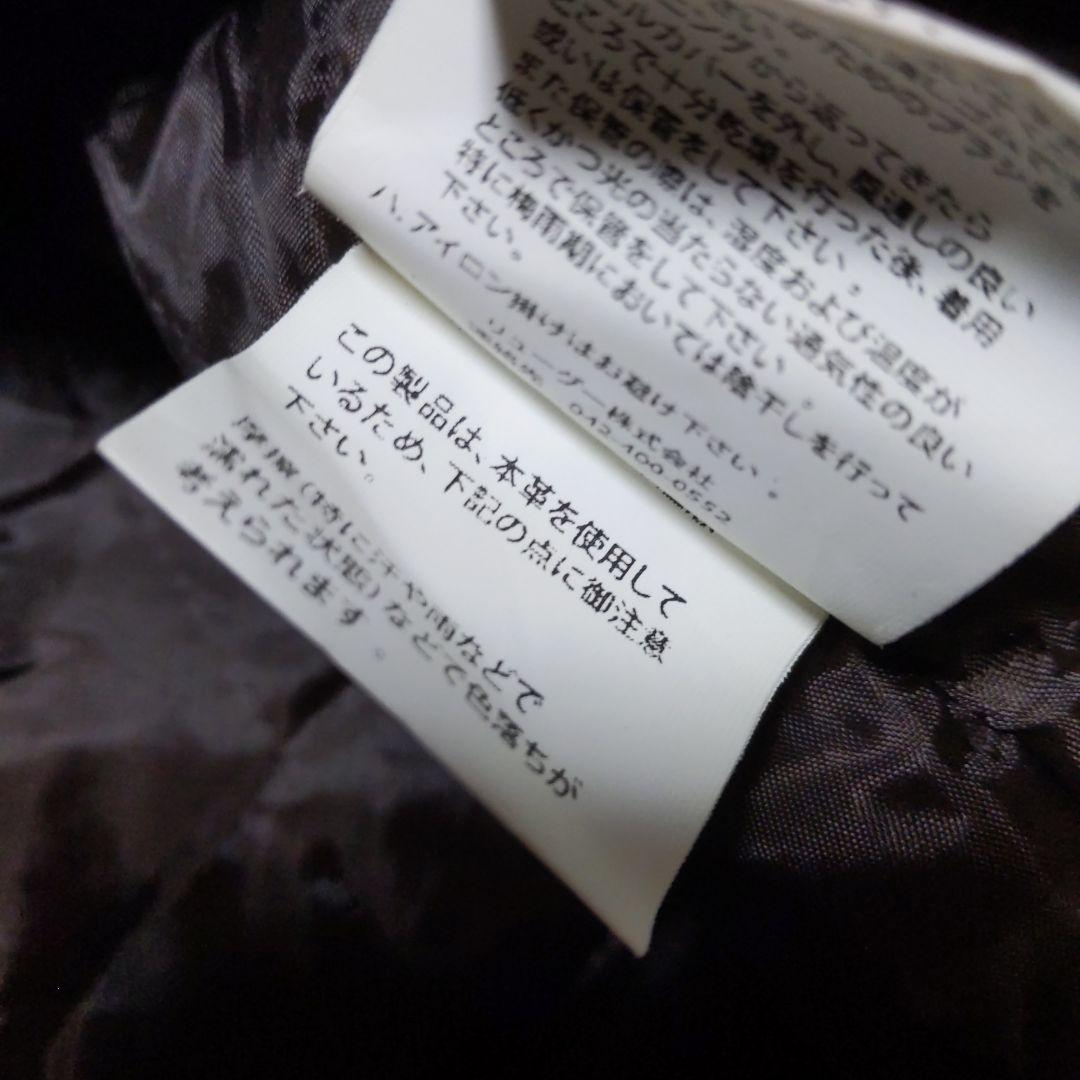 ためのブラシを
ニングから返ってきたら
ールカバーを外し、風通しの良い
ところで十分乾燥を行った後、着用
或いは保管をして下さい。
また保管の際は、湿度および温度が
低くかつ光の当たらない通気性の良い
ところで保管をして下さい
特に梅雨期においては陰干しを行って
下さい。
ハ.アイロン掛けはお避け下さい。
リューグー株式会社
042-400-0552
この製品は、本革を使用して
いるため、下記の点に御注意
下さい。
摩擦(特に汗や雨などで
濡れた状態)などで色落ちが
考えられます。